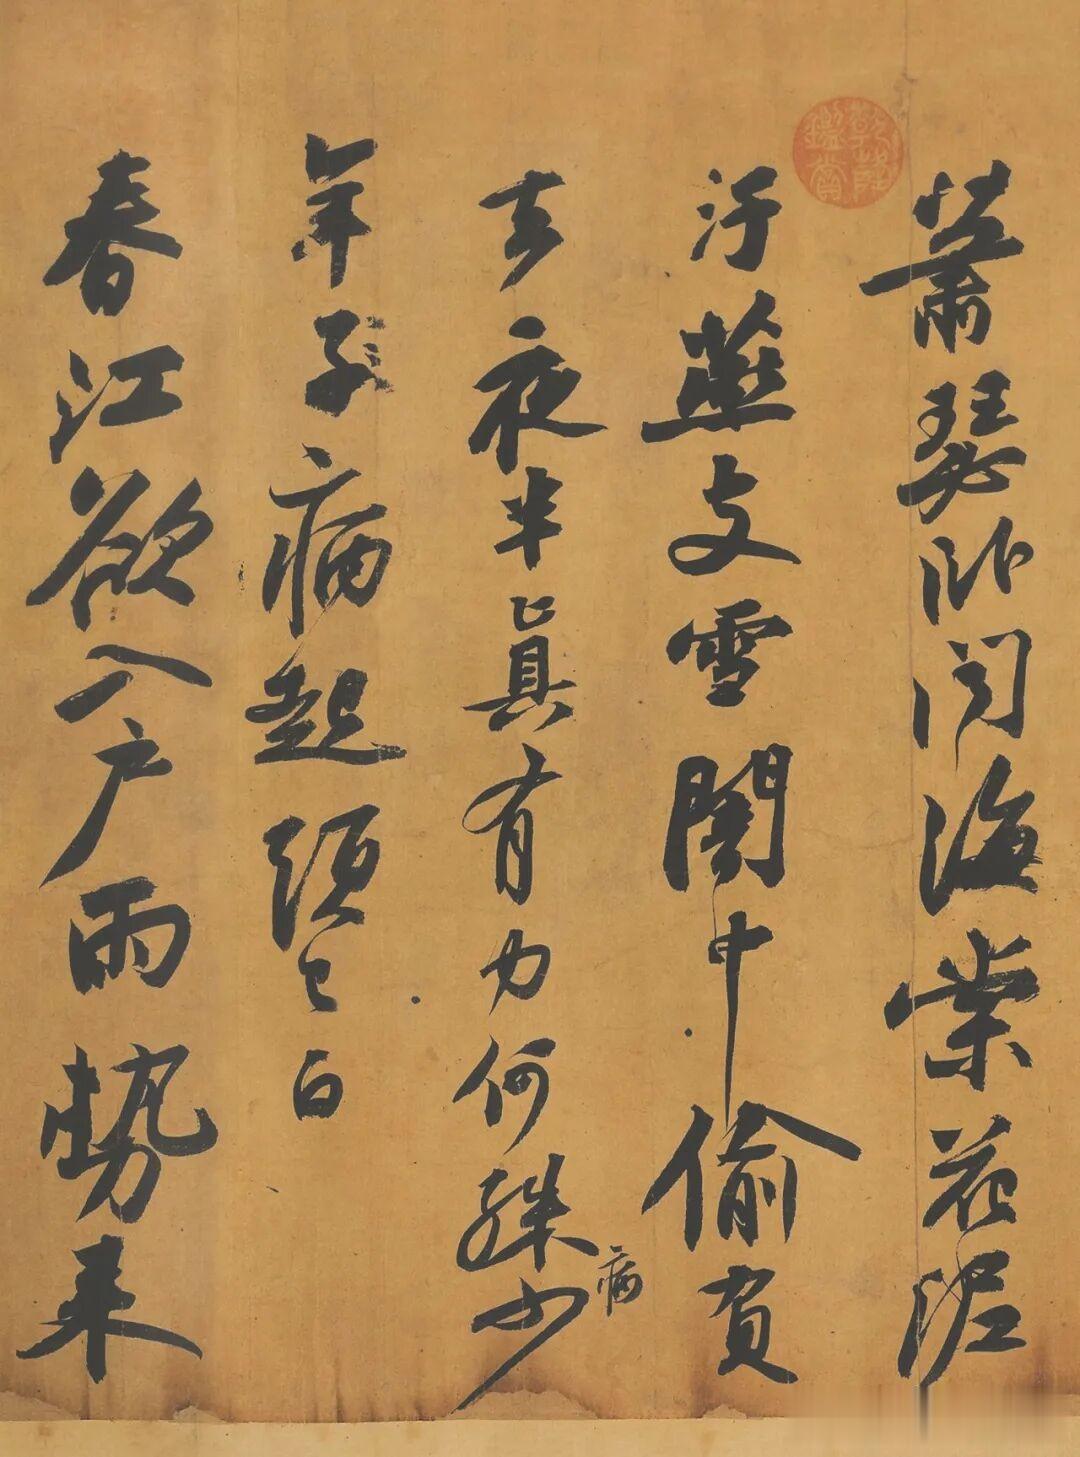 萧瑟卧闻海棠花泥
汙燕支雪闇中偷負
去夜半真有力何殊少
病
年子病起頭已白
春江欲入户雨勢来
乾隆鑑賞